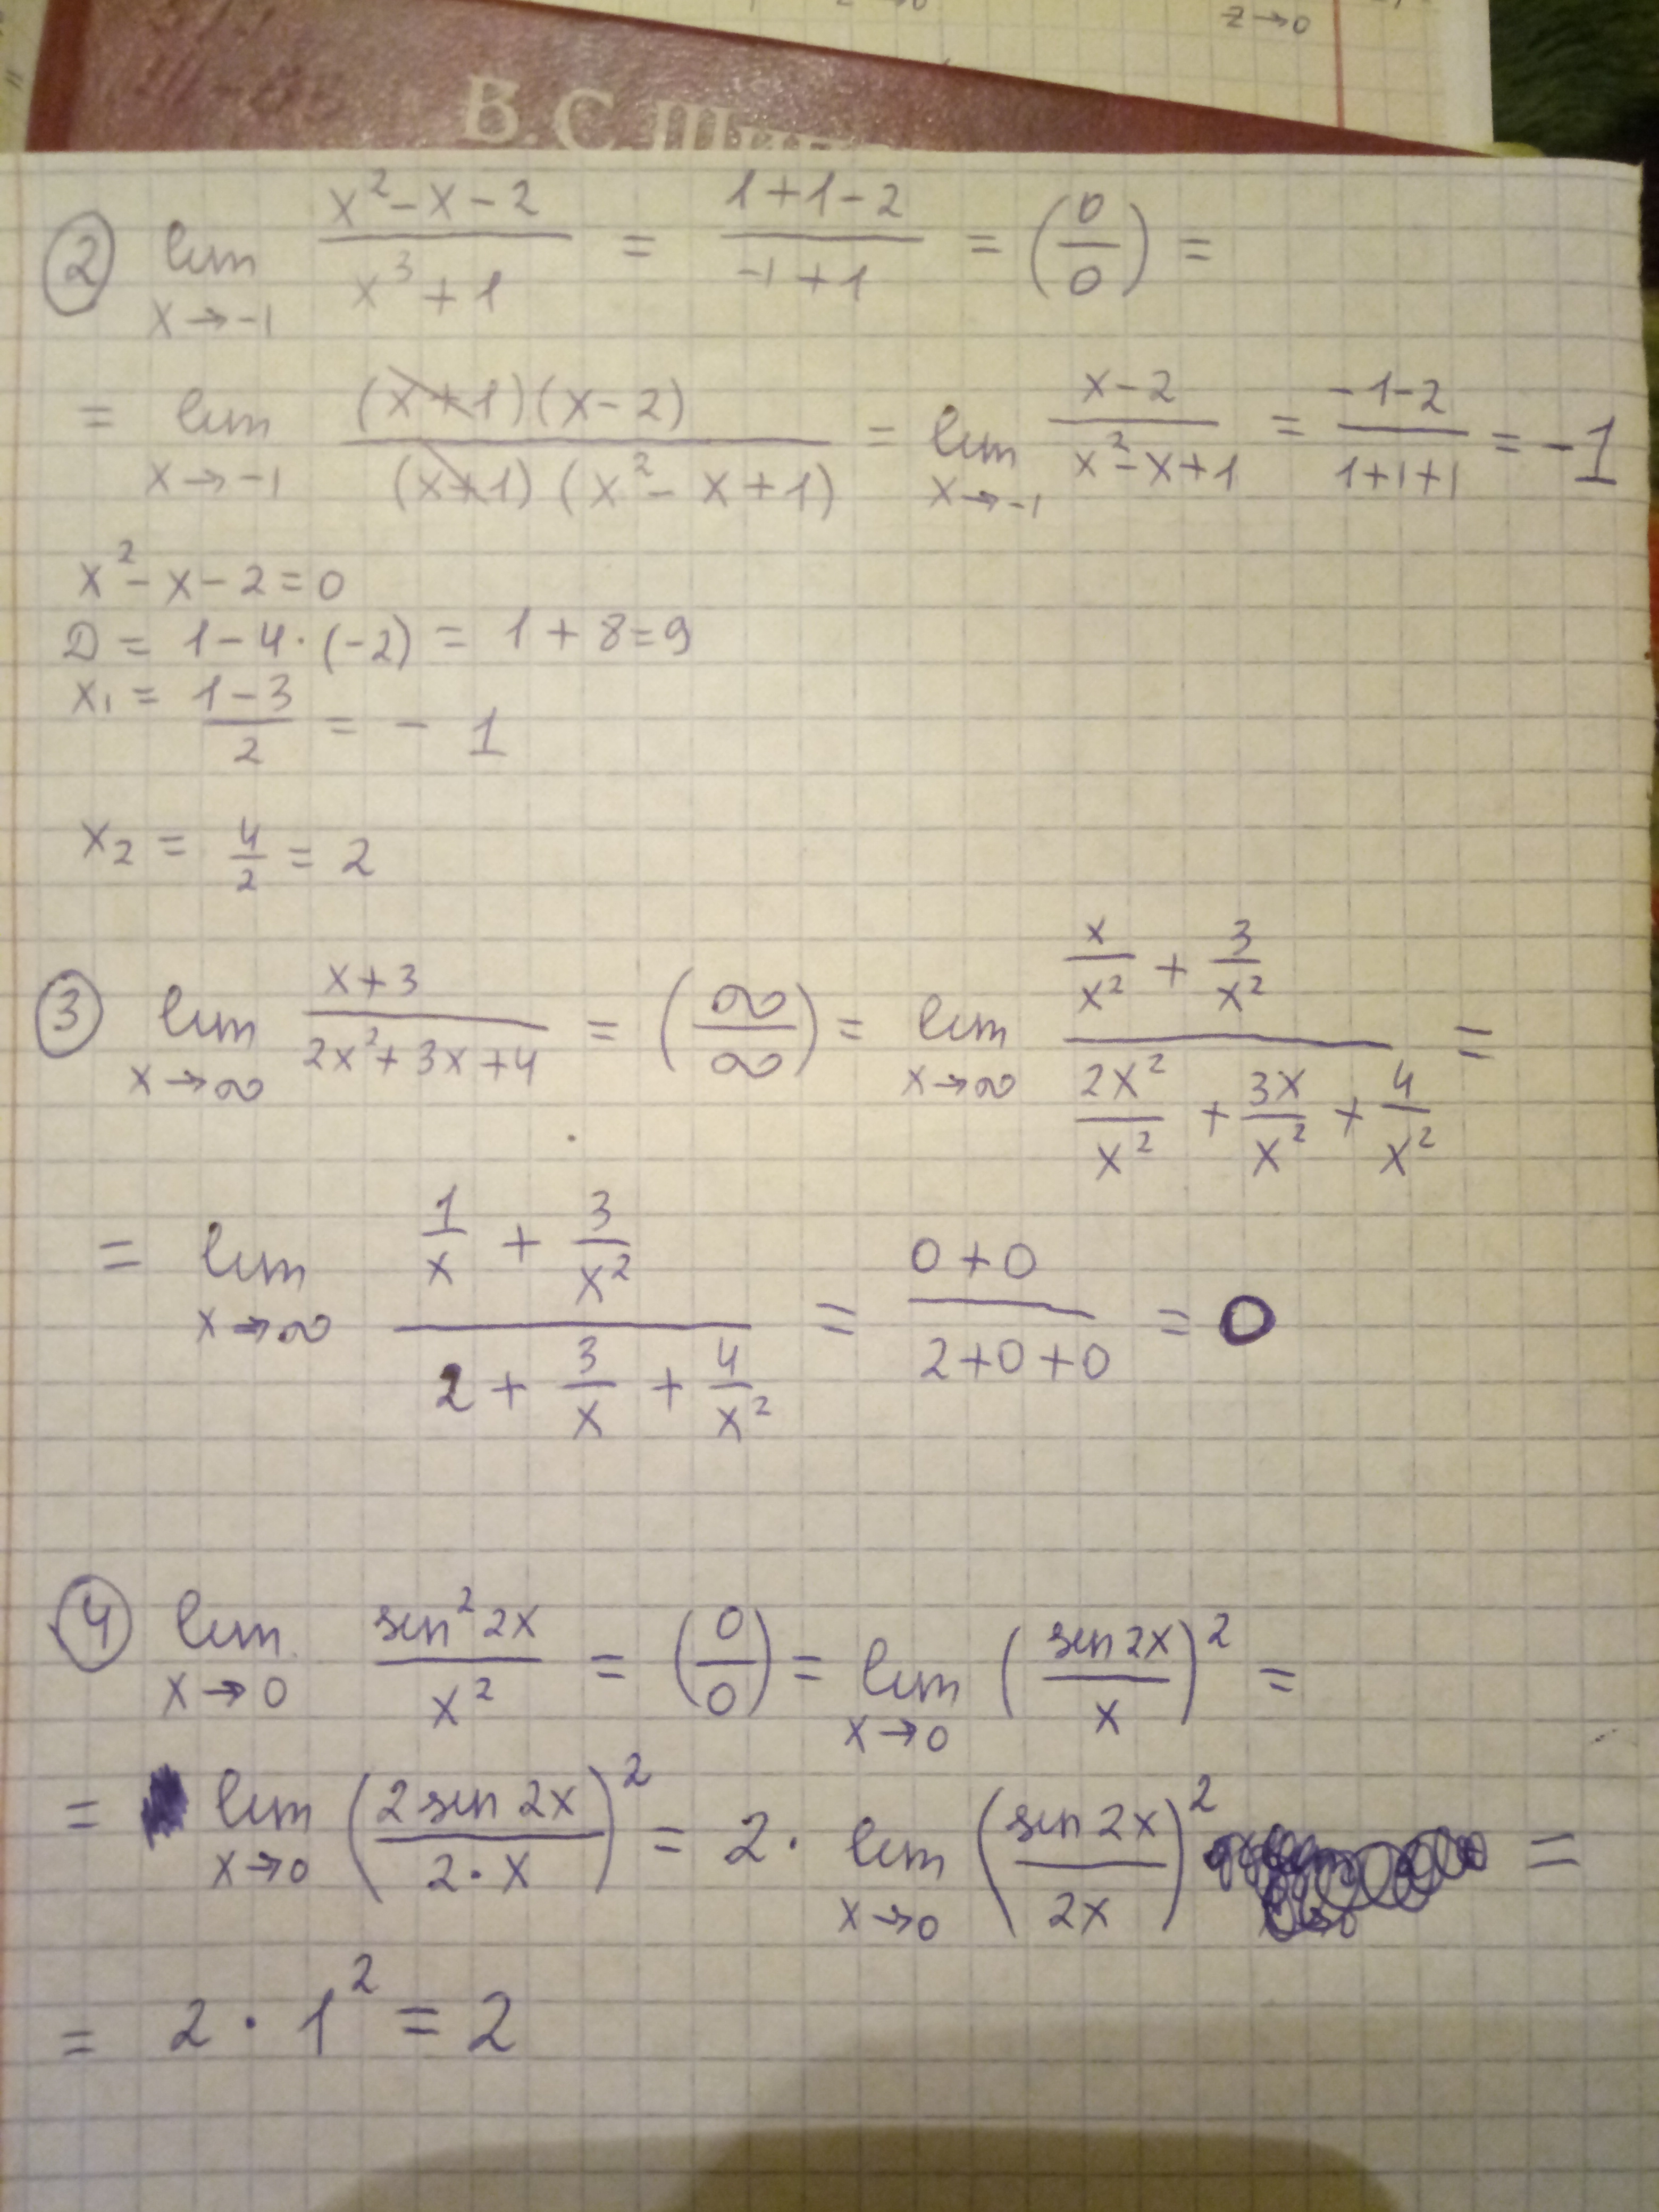 z→0
В.С.
② lim x→-1 (x²-x-2)/(x³+1) = (1+1-2)/(-1+1) = (0/0) =
= lim x→-1 ((x+1)(x-2))/((x+1)(x²-x+1)) = lim x→-1 (x-2)/(x²-x+1) = (-1-2)/(1+1+1) = -1
x²-x-2=0
D = 1-4·(-2) = 1+8=9
x₁ = (1-3)/2 = -1
x₂ = 4/2 = 2
③ lim x→∞ (x+3)/(2x²+3x+4) = (∞/∞) = lim x→∞ (x/x² + 3/x²)/(2x²/x² + 3x/x² + 4/x²) =
= lim x→∞ (1/x + 3/x²)/(2 + 3/x + 4/x²) = (0+0)/(2+0+0) = 0
④ lim x→0 sin²2x/x² = (0/0) = lim x→0 (sin2x/x)² =
= lim x→0 (2sin2x/2·x)² = 2· lim x→0 (sin2x/2x)² =
= 2·1² = 2